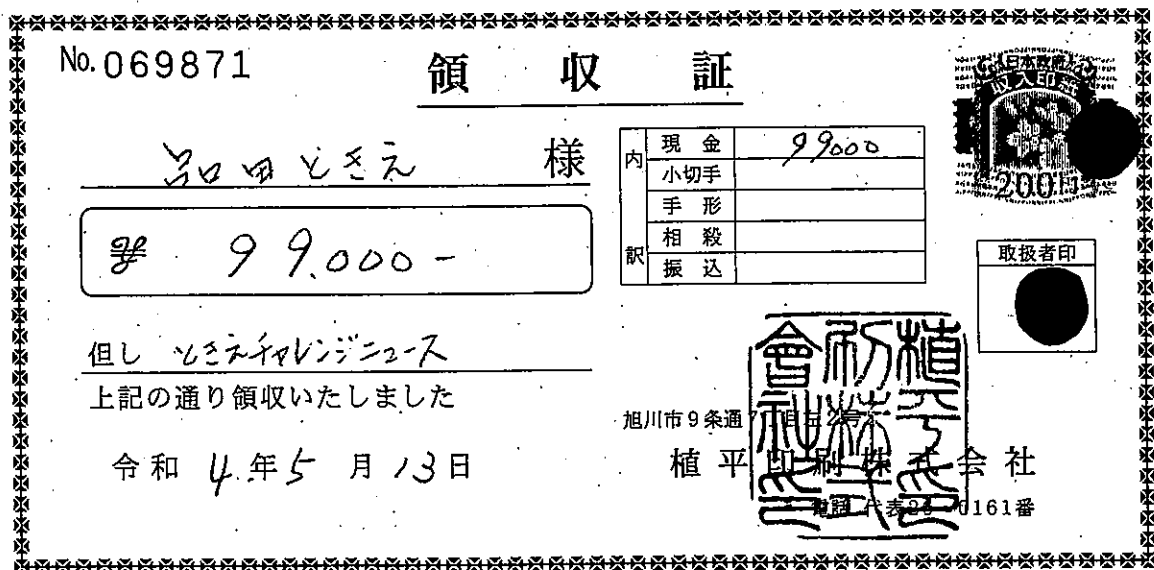 No.069871
領収証
日本政府
収入印紙
200円
品田ときえ 様
¥ 99,000-
内訳
現金 99,000
小切手
手形
相殺
振込
取扱者印
但し ときえチャレンジニュース
上記の通り領収いたしました
令和4年5月13日
旭川市9条通7丁目左2号
植平印刷株式会社
電話 代表26-0161番